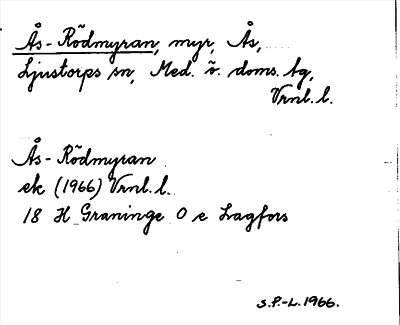 Ås-Rödmyran, myr, Ås,
Ljustorps sn, Med. ö. doms. tg,
Vrnl. l.
Ås-Rödmyran
ek (1966) Vrnl. l.
18 H Graninge O e Lagfors
S.P.-L. 1966.